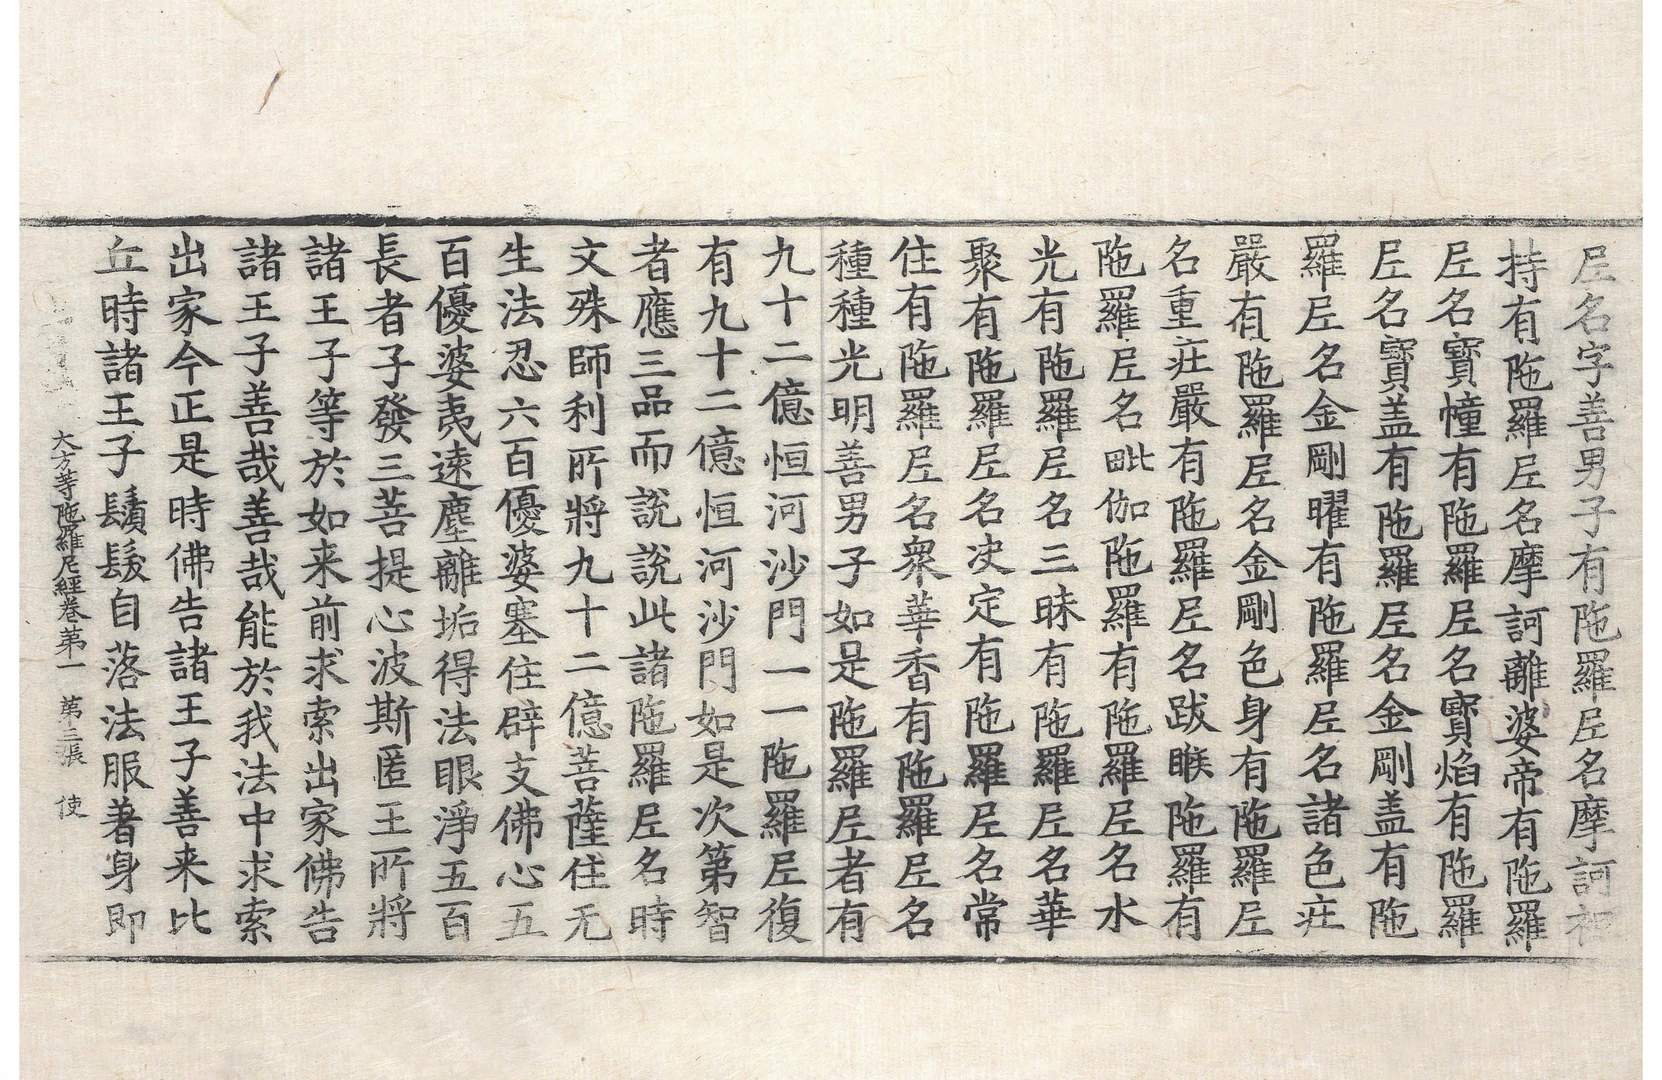 𡰱名字善男子有陁羅𡰱名摩訶袒
持有陁羅𡰱名摩訶離婆帝有陁羅
𡰱名寶幢有陁羅𡰱名寶焰有陁羅
𡰱名寶盖有陁羅𡰱名金剛盖有陁
羅𡰱名金剛曜有陁羅𡰱名諸色庄
嚴有陁羅𡰱名金剛色身有陁羅𡰱
名重庄嚴有陁羅𡰱名跋睺陁羅有
陁羅𡰱名毗伽陁羅有陁羅𡰱名水
光有陁羅𡰱名三昧有陁羅𡰱名華
聚有陁羅𡰱名决定有陁羅𡰱名常
住有陁羅𡰱名衆華香有陁羅𡰱名
種種光明善男子如是陁羅𡰱者有
九十二億恒河沙門一一陁羅𡰱復
有九十二億恒河沙門如是次第智
者應三品而說說此諸陁羅𡰱名時
文殊師利所將九十二億菩薩住无
生法忍六百優婆塞住辟支佛心五
百優婆夷遠塵離垢得法眼淨五百
長者子發三菩提心波斯匿王所將
諸王子等於如来前求索出家佛告
諸王子善哉善哉能於我法中求索
出家今正是時佛告諸王子善来比
丘時諸王子鬚髮自落法服著身即
大方等陁羅尼經卷第一 第三張 使